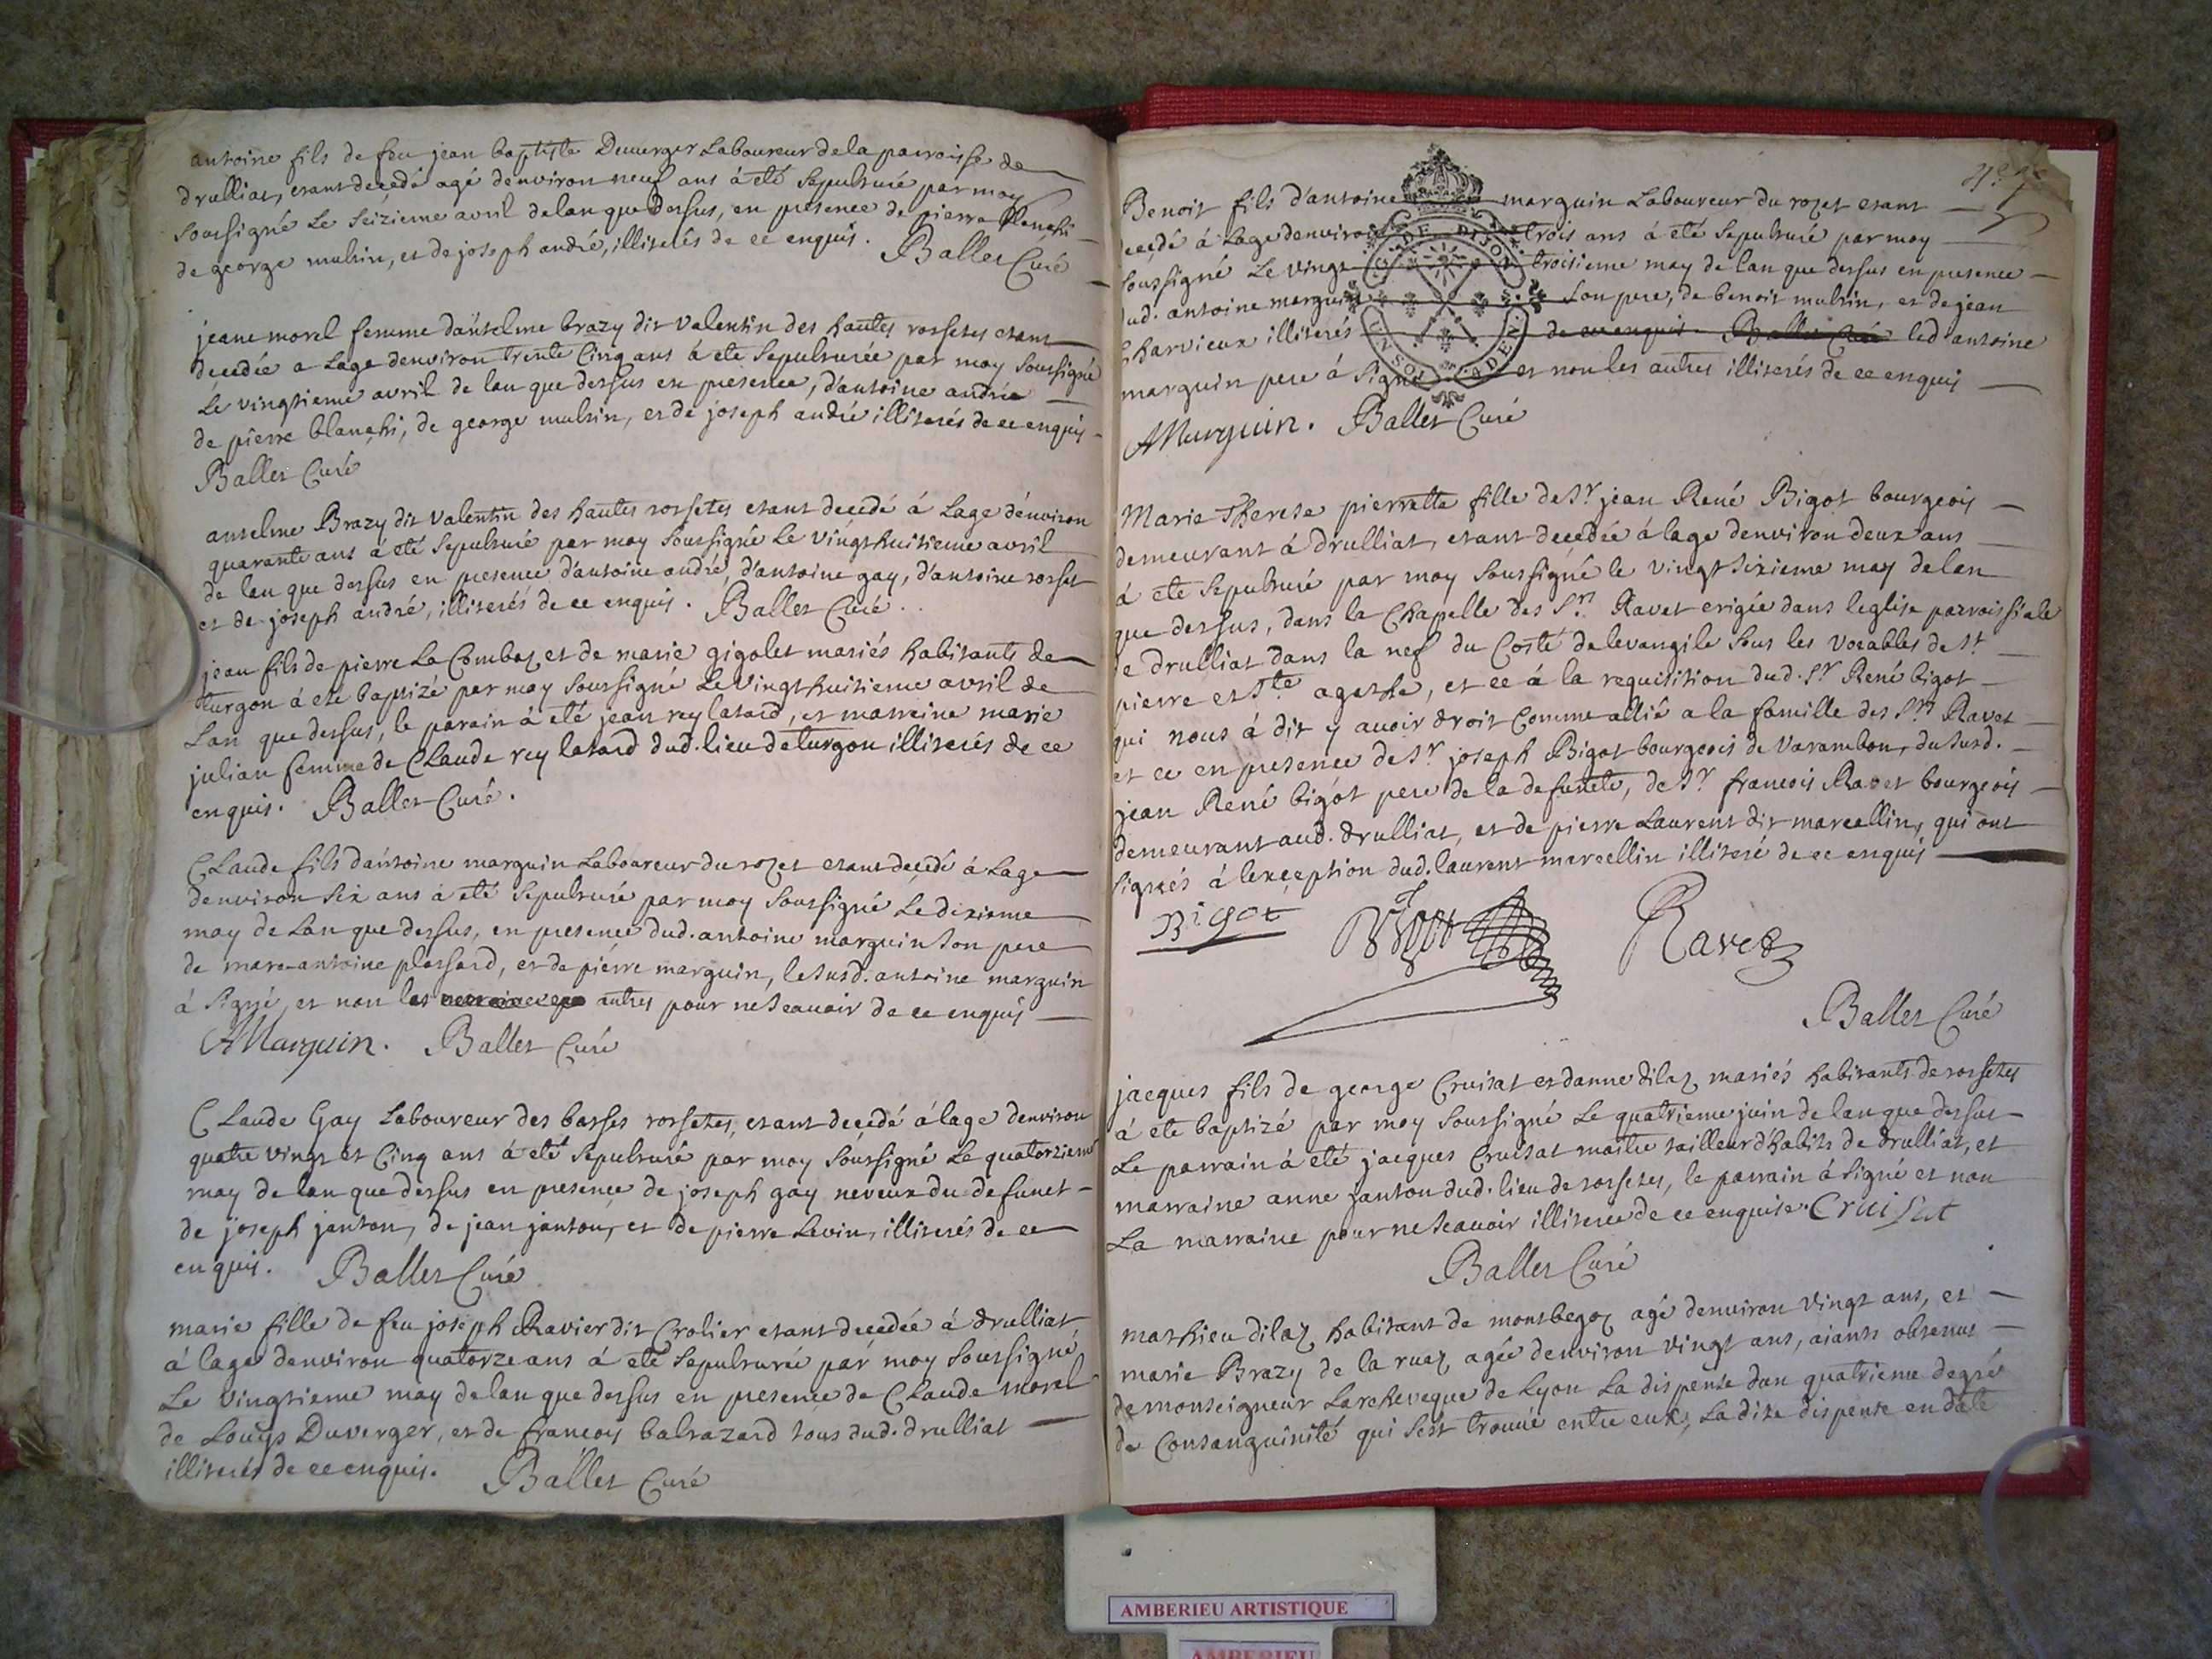 antoine fils de feu jean baptiste Duuerger Laboureur de la parroisse de
drulliat, etant decedé agé denviron neuf ans à eté Sepulturé par moy
Soussigné Le Seizieme avril de lan que dessus, en presence de pierre blanchi
de george multin, et de joseph andré, illiterés de ce enquis. Ballet Curé
jeane morel femme dantelme brazy dit Valentin des hautes rossetes etant
decedée a Lage denviron trente Cinq ans à eté Sepulturée par moy Soussigné
Le vingtieme avril de lan que dessus en presence, d'antoine andrée
de pierre blanchi, de george multin, et de joseph andré illiterés de ce enquis
Ballet Curé
anselme Brazy dit Valentin des hautes rossetes etant decedé à Lage d'environ
quarante ans à eté Sepulturé par moy Soussigné Le vingt huitieme avril
de lan que dessus en presence d'antoine andré, d'antoine gay, d'antoine rosset
et de joseph andré, illiterés de ce enquis. Ballet Curé.
jean fils de pierre La Combaz et de marie gigolet mariés habitants de
turgon à eté baptizé par moy Soussigné Le Vingt huitieme avril de
Lan que dessus, le parain à eté jean rey latard, et marraine marie
julian femme de Claude rey latard dud. lieu de turgon illiterés de ce
enquis. Ballet Curé.
Claude fils dantoine marguin Laboureur du rozet etant decedé à Lage
denviron Six ans à eté Sepulturé par moy Soussigné Le dixieme
may de Lan que dessus, en presence dud. antoine marguin Son pere
de marc-antoine plassard, et de pierre marguin, le Susd. antoine marguin
à Signé, et non les autres pour ne Scauoir de ce enquis
AMarguin. Ballet Curé
Claude Gay Laboureur des basses rossetes, etant decedé à lage denviron
quatre vingt et Cinq ans à eté Sepulturé par moy Soussigné Le quatorzieme
may de lan que dessus en presence de joseph gay neveux du defunct
de joseph janton, de jean janton, et de pierre Levin, illiterés de ce
enquis. Ballet Curé
marie fille de feu joseph Ravier dit Crolier etant decedée à drulliat
à lage denviron quatorze ans à eté Sepulturée par moy Soussigné
Le vingtieme may de lan que dessus en presence de Claude morel
de Louys Duverger, et de francoy baltazard tous dud. drulliat
illiterés de ce enquis. Ballet Curé
Benoit fils d'antoine marguin Laboureur du rozet etant
decedé à Lage denviron trois ans à eté Sepulturé par moy
Soussigné Le vingt troisieme may de lan que dessus en presence
dud. antoine marguin Son pere, de benoit multin, et de jean
Charvieux illiterés de ce enquis. Ballet Curé led antoine
marguin pere à Signé et non les autres illiterés de ce enquis
AMarguin. Ballet Curé
Marie Therese pierrette fille de Sr jean René Bigot bourgeois
demeurant à drulliat, etant decedée à lage denviron deux ans
à eté Sepulturé par moy Soussigné le vingt Sixieme may de lan
que dessus, dans la Chapelle des Srs Ravet erigée dans leglise parroissiale
de drulliat dans la nef du Costé de levangile Sous les vocables de St
pierre et Ste agathe, et ce à la requisition dud. Sr René bigot
qui nous à dit y avoir droit Comme allié a la famille des Srs Ravet
et ce en presence de Sr joseph Bigot bourgeois de Varambon, du Susd.
jean René bigot pere de la defuncte, de Sr francois Ravet bourgeois
demeurant aud. drulliat, et de pierre Laurent dit marcellin, qui ont
signés à lexception dud. laurent marcellin illiteré de ce enquis
Bigot Bigot Ravet
Ballet Curé
jacques fils de george Cruisat et danne dilaz mariés habitants de rossetes
à eté baptizé par moy Soussigné Le quatrieme juin de lan que dessus
Le parrain à eté jacques Cruisat maitre tailleur d'habits de drulliat, et
marraine anne janton dud. lieu de rossetes, le parrain à Signé et non
La marraine pour ne Scauoir illiterée de ce enquise. Cruisat
Ballet Curé
mathieu dilaz habitant de montbegoz agé denviron vingt ans, et
marie Brazy de la ruaz agée denviron vingt ans, aiants obtenus
de monseigneur Larcheveque de Lyon La dispense dun quatrieme degré
de Consanguinité qui Sest trouué entre eux, La dite dispense en date
AMBERIEU ARTISTIQUE
AMBERIEU